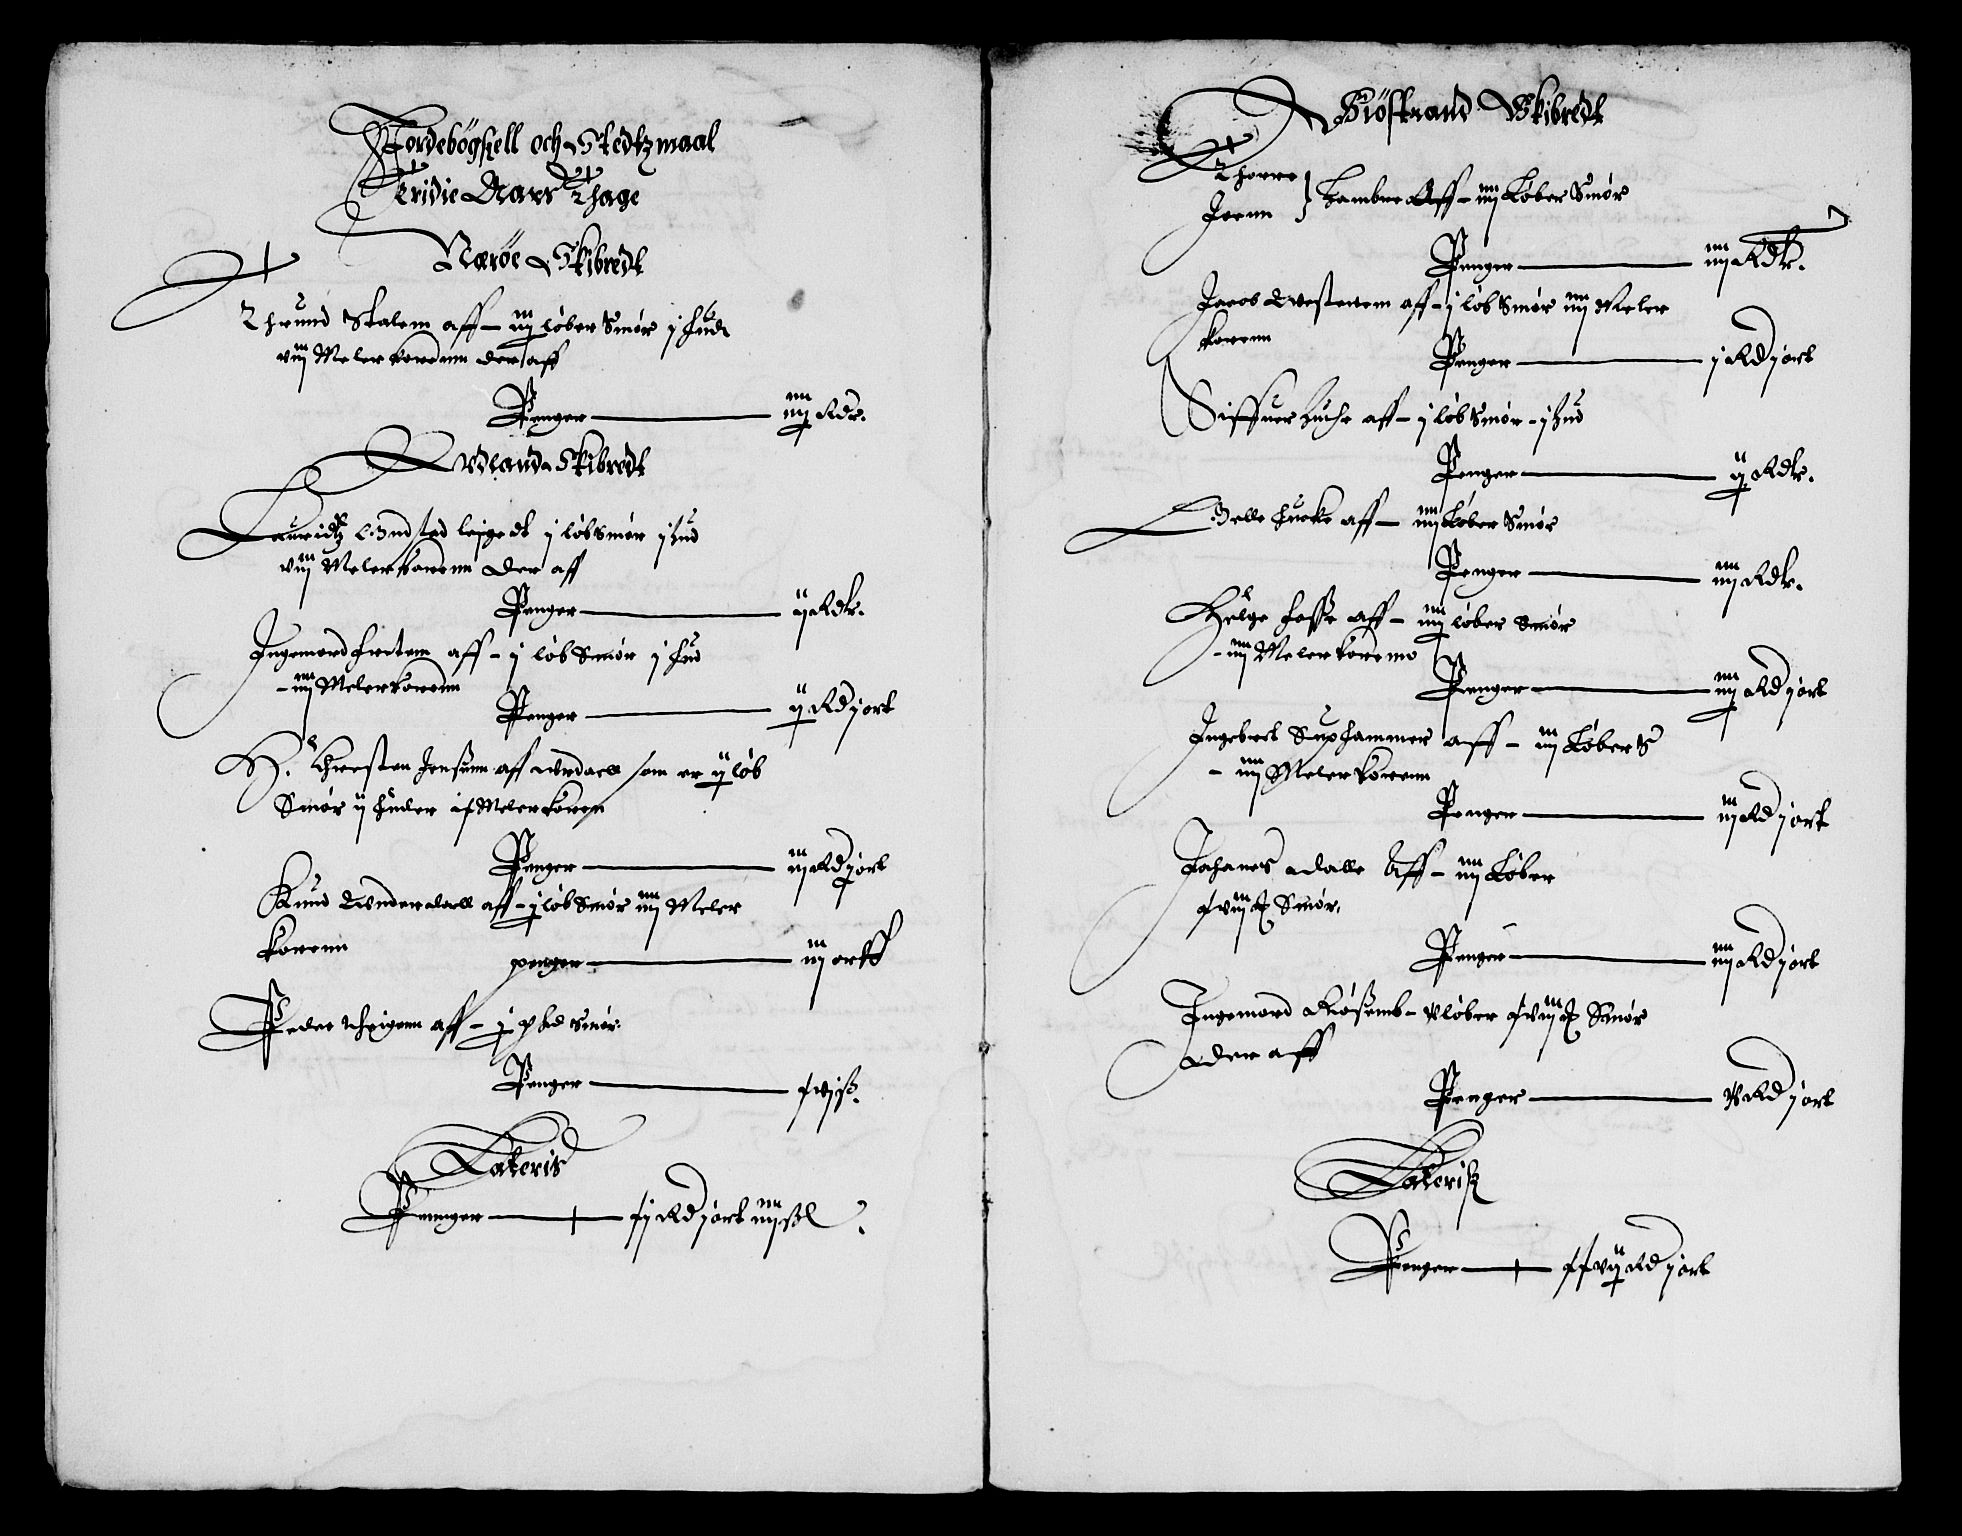 Jordebögsell och Stedtzmaal
Tridie Aars Thage
Nærøe Skibredt
Thrund Skalem aff – iiij løber Smør j hud
viij Meler korenn der aff
Penger —— iiij Rdr.
Urland Skibredt
Lauridtz leigedt j løb Smør j hud
viij Meler korenn der aff
Penger —— ij Rdr.
Ingemord Fretem aff – j løb Smør j hud
– iiij Meler korenn
Penger —— ij Rd j ort
H. Chresten Jensønn aff som er ij løb
Smør ij huder Meler koren
Penger —— iij Rd j ort
Knud Underdall aff – j løb Smør iiij Meler
korenn
penger —— iij ortt
Peder aff – j pd Smør
Penger —— xvj ß.
Lateris
Pennger —— xij Rd j ort iiij ß
Siöstrand Skibredt
Thorre
Joenn } Hambre Aff – iiij Løber Smør
Penger —— iiij Rdr.
Jacob aff – j løb Smør iiij Meler
korenn
Penger —— j Rd j ort
Siffuer Huche aff – j løb Smør – j hud
Penger —— ij Rdr.
Pelle Hucke aff – iiij Løber Smør
Penger —— iiij Rdr.
Helge Fosse aff – iiij løber Smør
– iiij Meler korenno
Penger —— iiij Rd j ort
Ingebret Suphammer aff – iij Løber S
– iiij Meler korenn
Penger —— iij Rd j ort
Johanes Dalle Aff – iiij Løber
xviij Smør.
Penger —— iiij Rd j ort
Ingemord v løber xviij Smør
der aff
Penger —— v Rd j ort
Lateriß
Penger —— xxvij Rd j ort